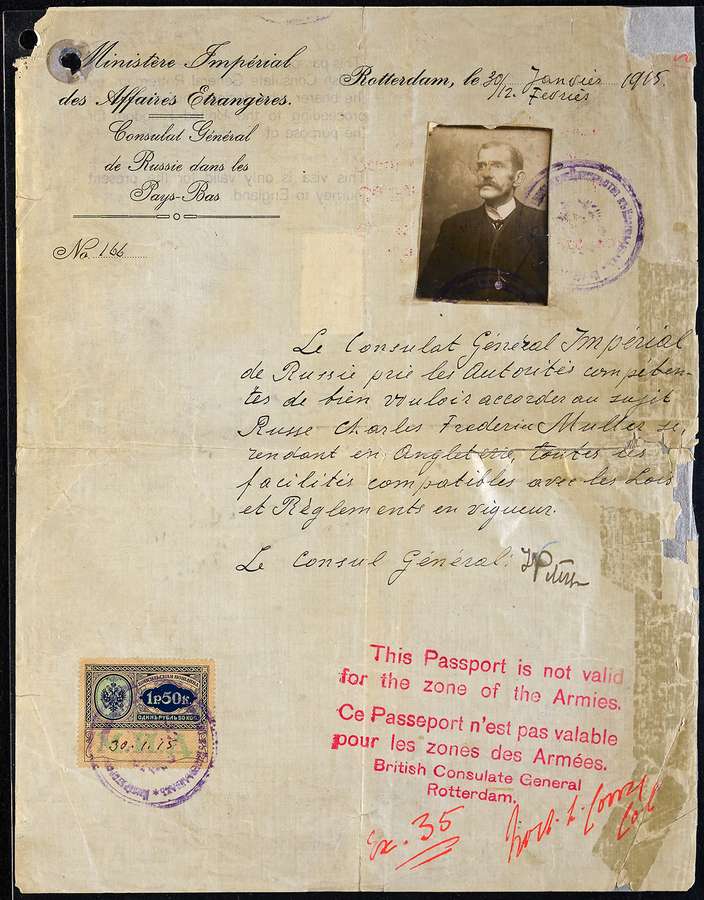 Ministère Impérial
des Affaires Etrangères.
Consulat Général
de Russie dans les
Pays-Bas
No. 166
Rotterdam, le 30/12. Janvier/Fevrier 1915.
Le Consulat Général Impérial
de Russie prie les Autorités compéten-
tes de bien vouloir accorder au sujet
Russe Charles Frederic Muller se
rendant en Angleterie, toutes les
facilités compatibles avec les Lois
et Règlements en vigueur.
Le Consul Général:
1Р50К.
ОДИНЪ РУБЛЬ 50 КОП.
30.1.15
This Passport is not valid
for the zone of the Armies.
Ce Passeport n'est pas valable
pour les zones des Armées.
British Consulate General
Rotterdam.
Ex. 35